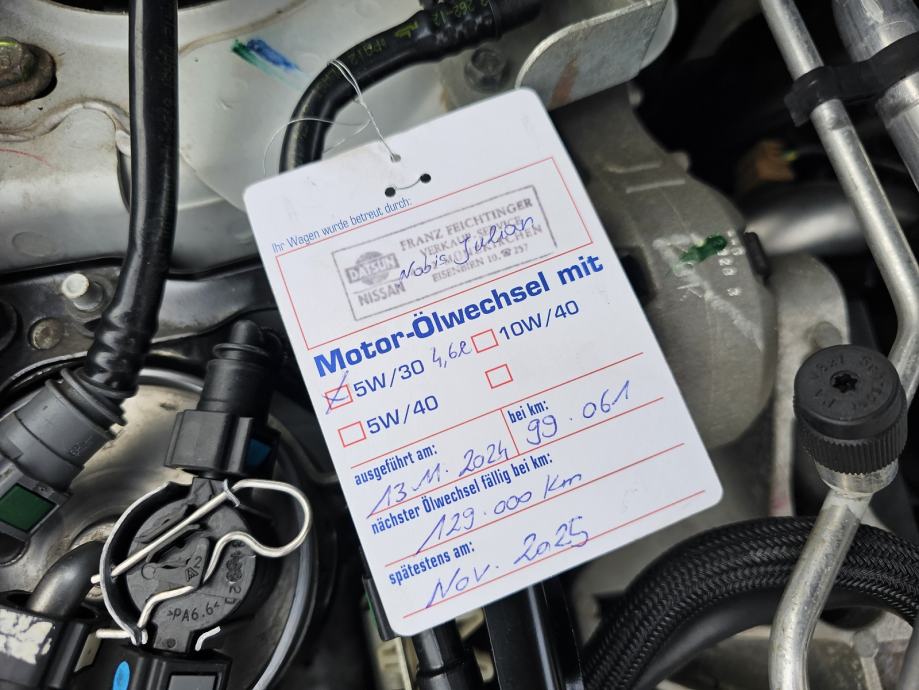 Ihr Wagen wurde betreut durch:
DATSUN
NISSAN
FRANZ FEICHTINGER
VERKAUF, SERVICE
EISENBIRN 10, ☎ 257
Nobis Julian
Motor-Ölwechsel mit
5W/30 4,6l 10W/40
5W/40
ausgeführt am: bei km:
13.11.2024 99.061
nächster Ölwechsel fällig bei km:
129.000 Km
spätestens am:
Nov. 2025
>PA6.6<